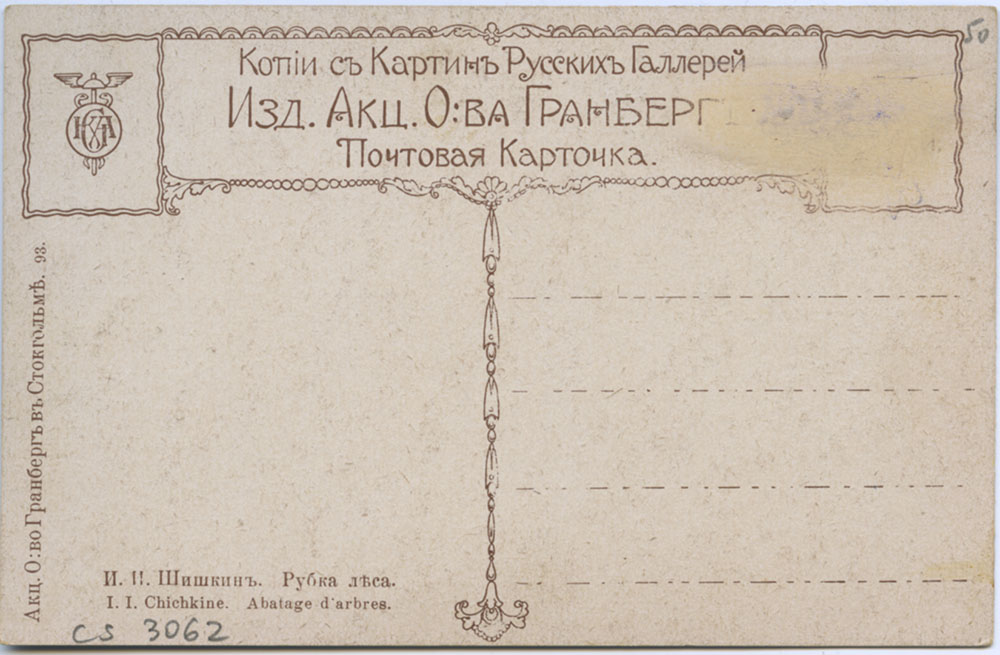 50
Копіи съ Картинъ Русскихъ Галлерей
Изд. Акц. О:ва Гранберг
Почтовая Карточка.
Акц. О:во Гранбергъ въ Стокгольмѣ. 93.
И. И. Шишкинъ. Рубка лѣса.
I. I. Chichkine. Abatage d'arbres.
CS 3062